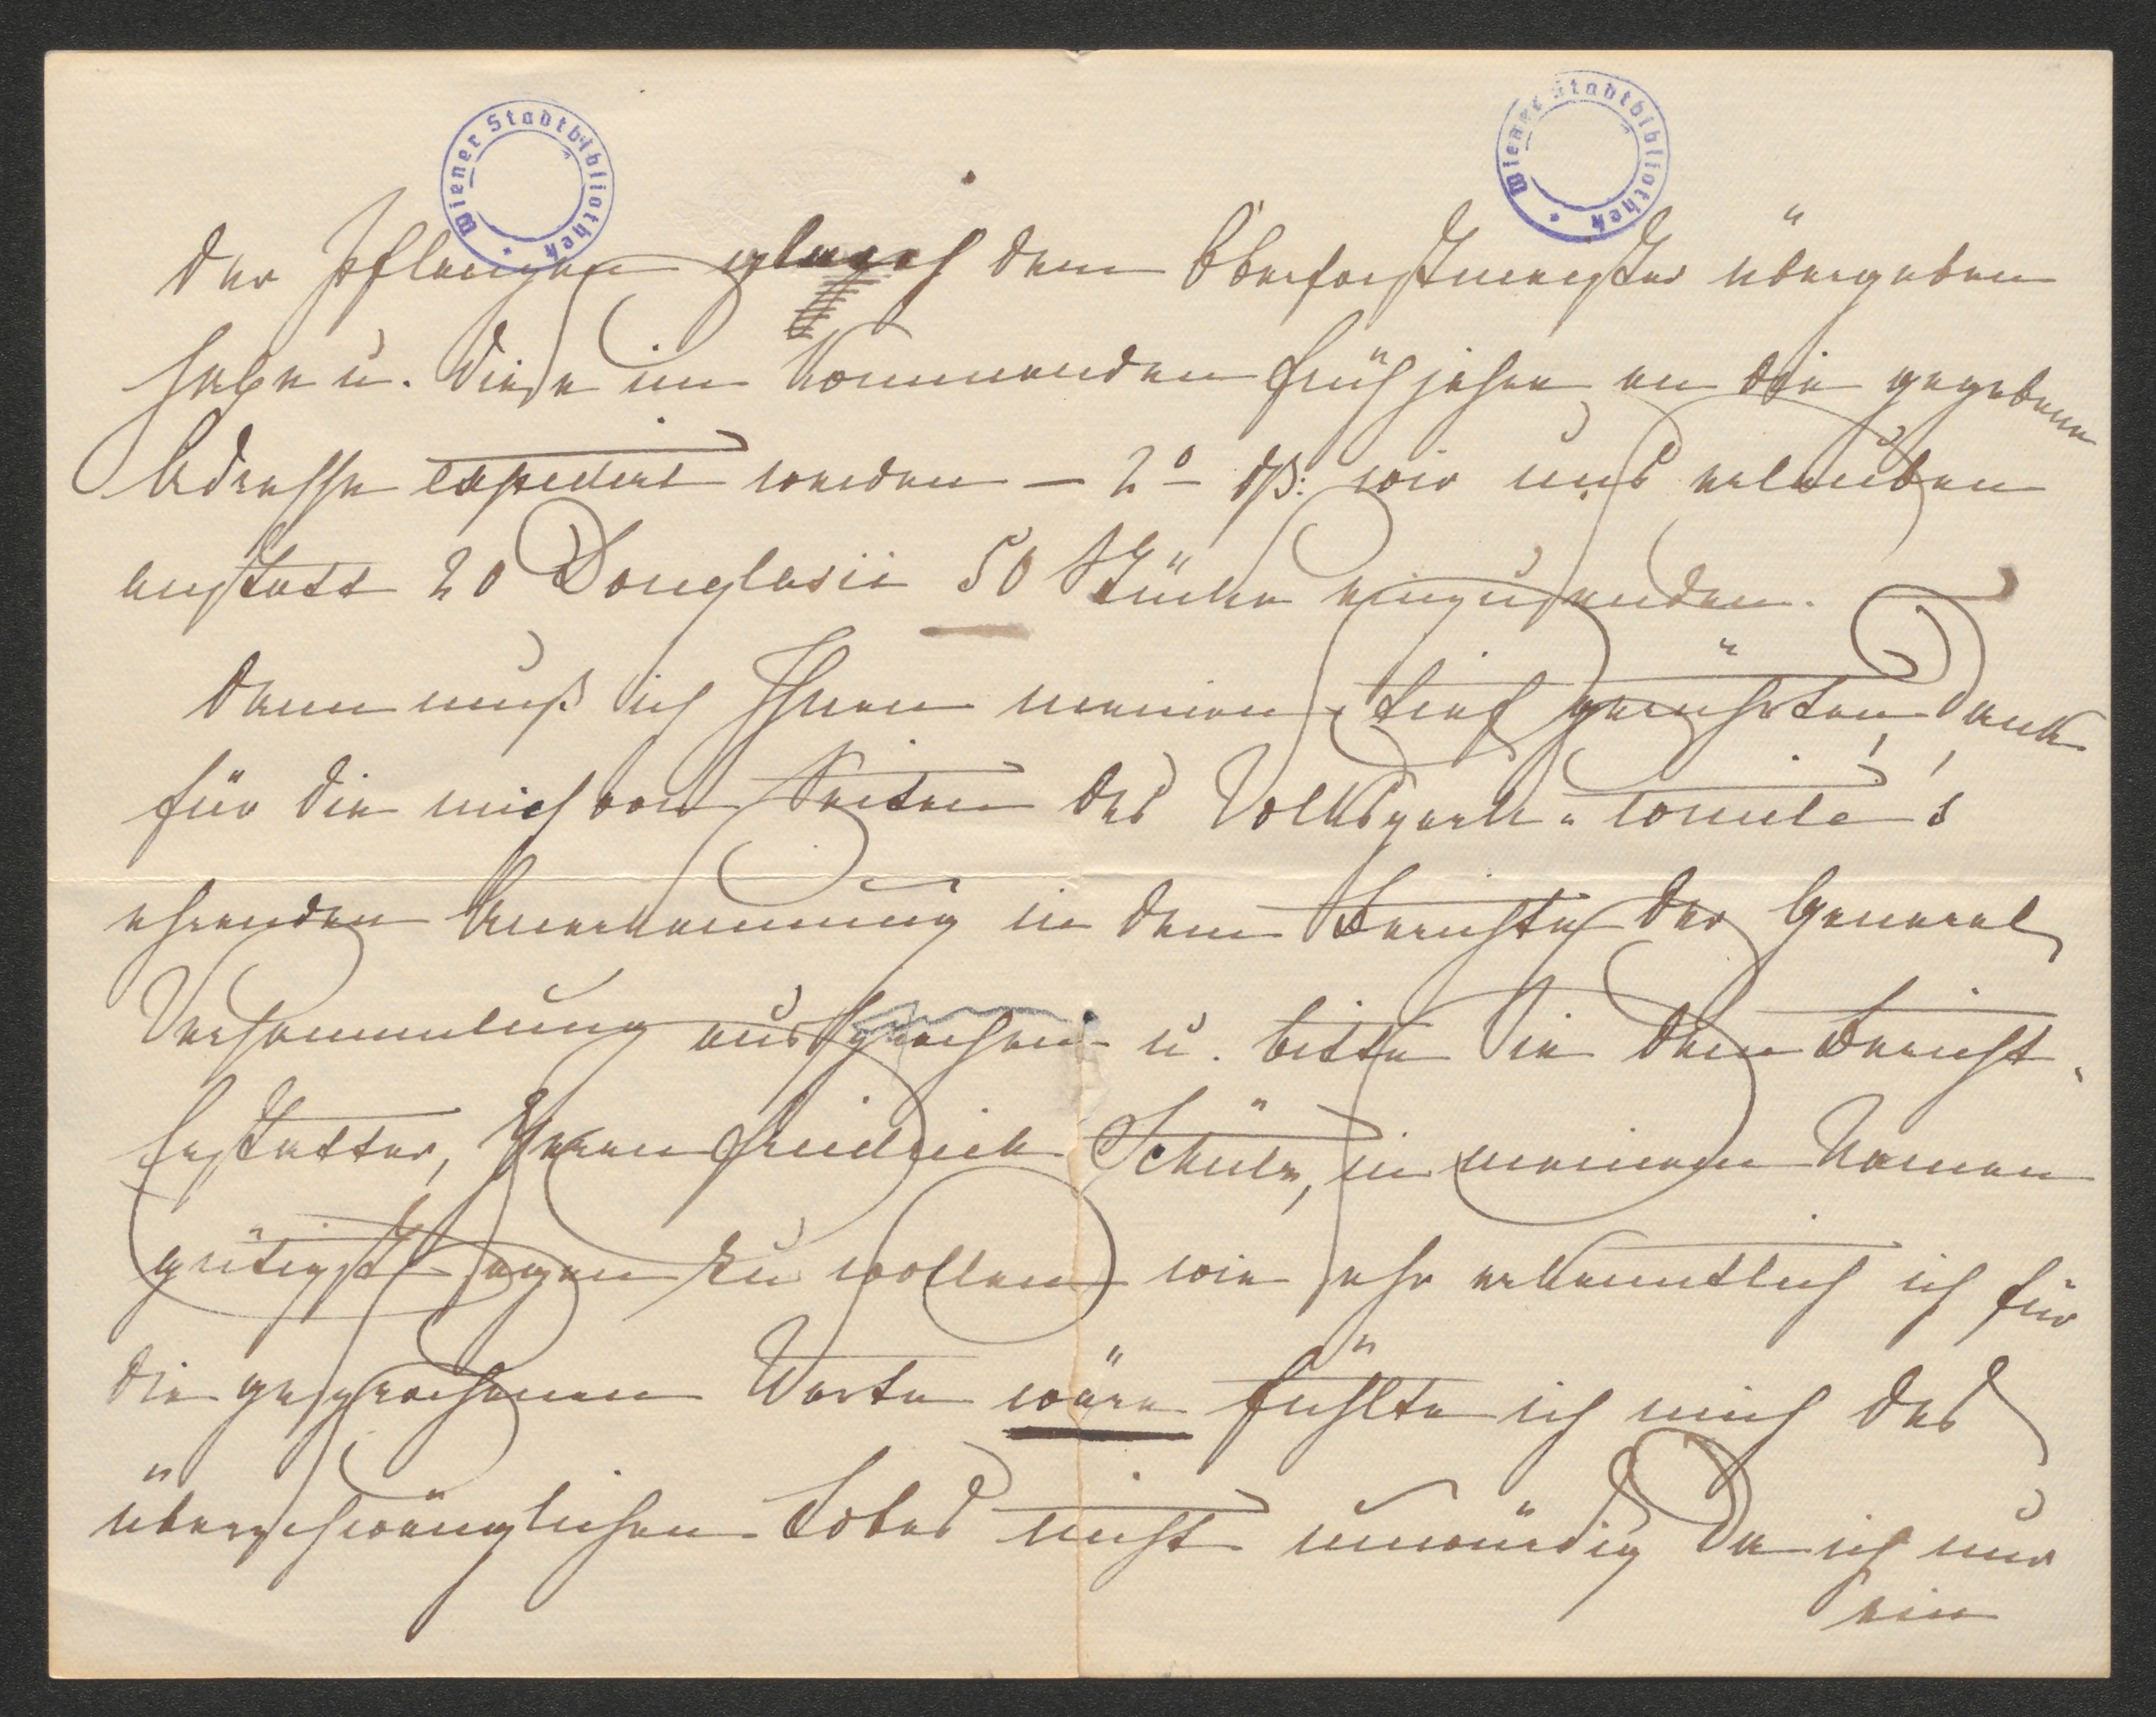 Wiener Stadtbibliothek
Wiener Stadtbibliothek
der Pflanzen gleich dem Oberforstmeister übergeben
habe u. diese im kommenden Frühjahre an die gegebene
Adresse expedirt werden – 2º dß: wir uns erlauben
anstatt 20 Douglasii 50 Stücke einzusenden.
Dann muß ich Ihnen meinen tief gerührten Dank
für die mich von Seiten des Volkspark-Comité's
ehrenden Anerkennung in dem Berichte der General
Versammlung aussprechen u. bitte Sie dem Bericht
Erstatter, Herrn Friedrich Schüler, in meinem Namen
gütigst sagen zu wollen wie sehr erkenntlich ich für
die gesprochenen Worte wäre fühlte ich mich des
überschwänglichen Lobes nicht unwürdig da ich nur
ein